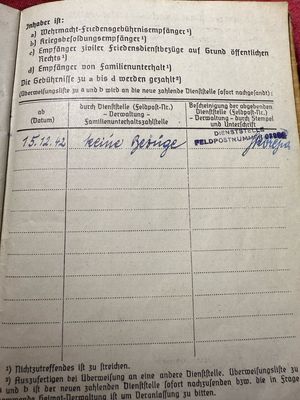 Inhaber ist:
a) Wehrmacht-Friedensgebührnisempfänger ¹)
b) Kriegsbesoldungsempfänger ¹)
c) Empfänger ziviler Friedensdienstbezüge auf Grund öffentlichen
Rechts ¹)
d) Empfänger von Familienunterhalt ¹)
Die Gebührnisse zu a bis d werden gezahlt ²)
(Überweisungsliste zu a und b wird an die neue zahlende Dienststelle sofort nachgesandt):
ab
(Datum)
durch Dienststelle (Feldpost-Nr.)
- Verwaltung -
Familienunterhaltszahlstelle
Bescheinigung der abgebenden
Dienststelle (Feldpost-Nr.)
- Verwaltung - durch Stempel
und Unterschrift
15.12.42 keine Bezüge
DIENSTSTELLE
FELDPOSTNUMMER
¹) Nichtzutreffendes ist zu streichen.
²) Auszufertigen bei Überweisung an eine andere Dienststelle. Überweisungsliste zu
a und b ist der neuen zahlenden Dienststelle sofort nachzusenden bzw. die in Frage
Heimat-Verwaltung ist um Veranlassung zu bitten.